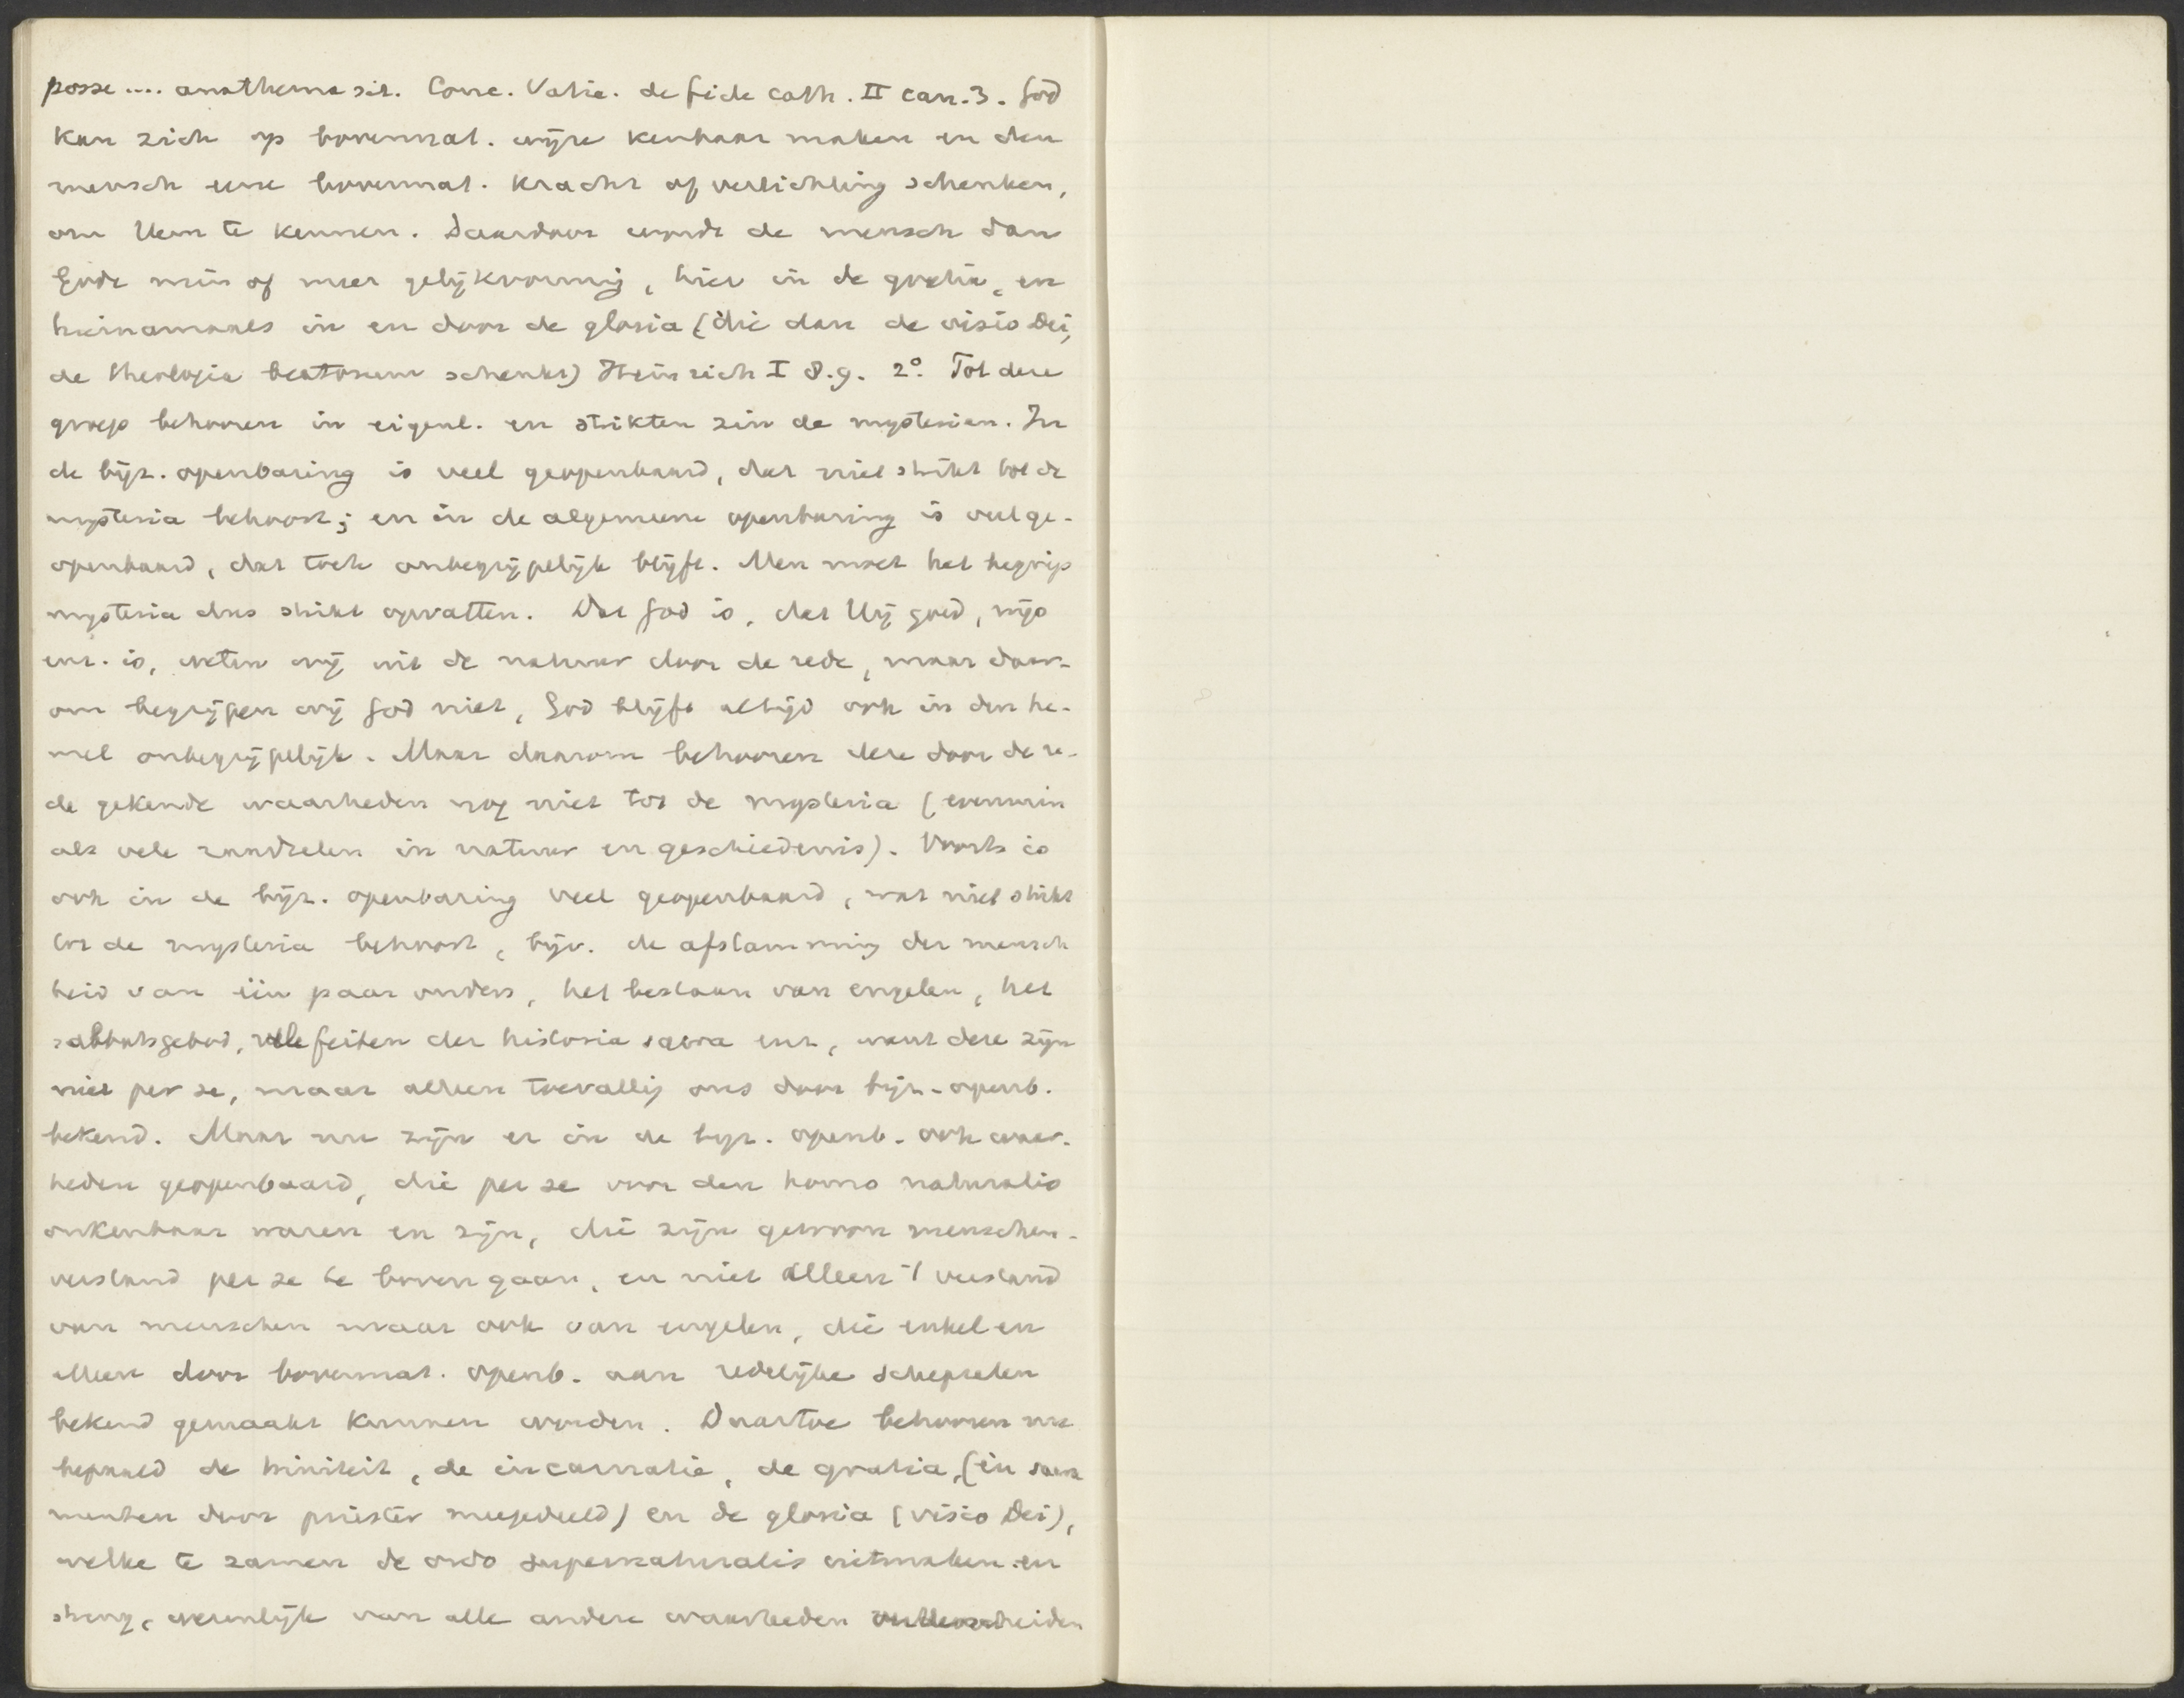 posse .... anathema sit. Conc. Vatic. de fide cath. II can. 3. God
kan zich op bovennat. wijze kenbaar maken en den
mensch eene bovennat. kracht of verlichting schenken,
om Hem te kennen. Daardoor wordt de mensch dan
Gode min of meer gelijkvormig, hier in de gratia, en
hiernamaals in en door de gloria (die dan de visio Dei,
de theologia beatorum schenkt) Heinrich I 8.9. 2º. Tot deze
groep behooren in eigenl. en strikten zin de mysterien. In
de bijz. openbaring is veel geopenbaard, dat niet strikt tot de
mysteria behoort; en in de algemeene openbaring is veel ge-
openbaard, dat toch onbegrijpelijk blijft. Men moet het begrip
mysteria dus strikt opvatten. Dat God is, dat Hij goed, wijs
enz. is, weten wij uit de natuur door de rede, maar daar-
om begrijpen wij God niet, God blijft altijd ook in den he-
mel onbegrijpelijk. Maar daarom behooren deze door de re-
de gekende waarheden nog niet tot de mysteria (evenmin
als vele raadselen in natuur en geschiedenis). Voorts is
ook in de bijz. openbaring veel geopenbaard, wat niet strikt
tot de mysteria behoort, bijv. de afstamming der mensch
heid van één paar ouders, het bestaan van engelen, het
sabbatsgebod, vele feiten der historia sacra enz, want deze zijn
niet per se, maar alleen toevallig ons door bijz. openb.
bekend. Maar nu zijn er in de bijz. openb. ook waar-
heden geopenbaard, die per se voor den homo naturalis
onkenbaar waren en zijn, die zijn gewoon menschen-
verstand per se te boven gaan, en niet alleen 't verstand
van menschen maar ook van engelen, die enkel en
alleen door bovennat. openb. aan redelijke schepselen
bekend gemaakt kunnen worden. Daartoe behooren nu
bepaald de triniteit, de incarnatie, de gratia, (in sacra
menten door priester meegedeeld) en de gloria (visio Dei),
welke te zamen de ordo supernaturalis uitmaken en
streng, wezenlijk van alle andere waarheden onderscheiden